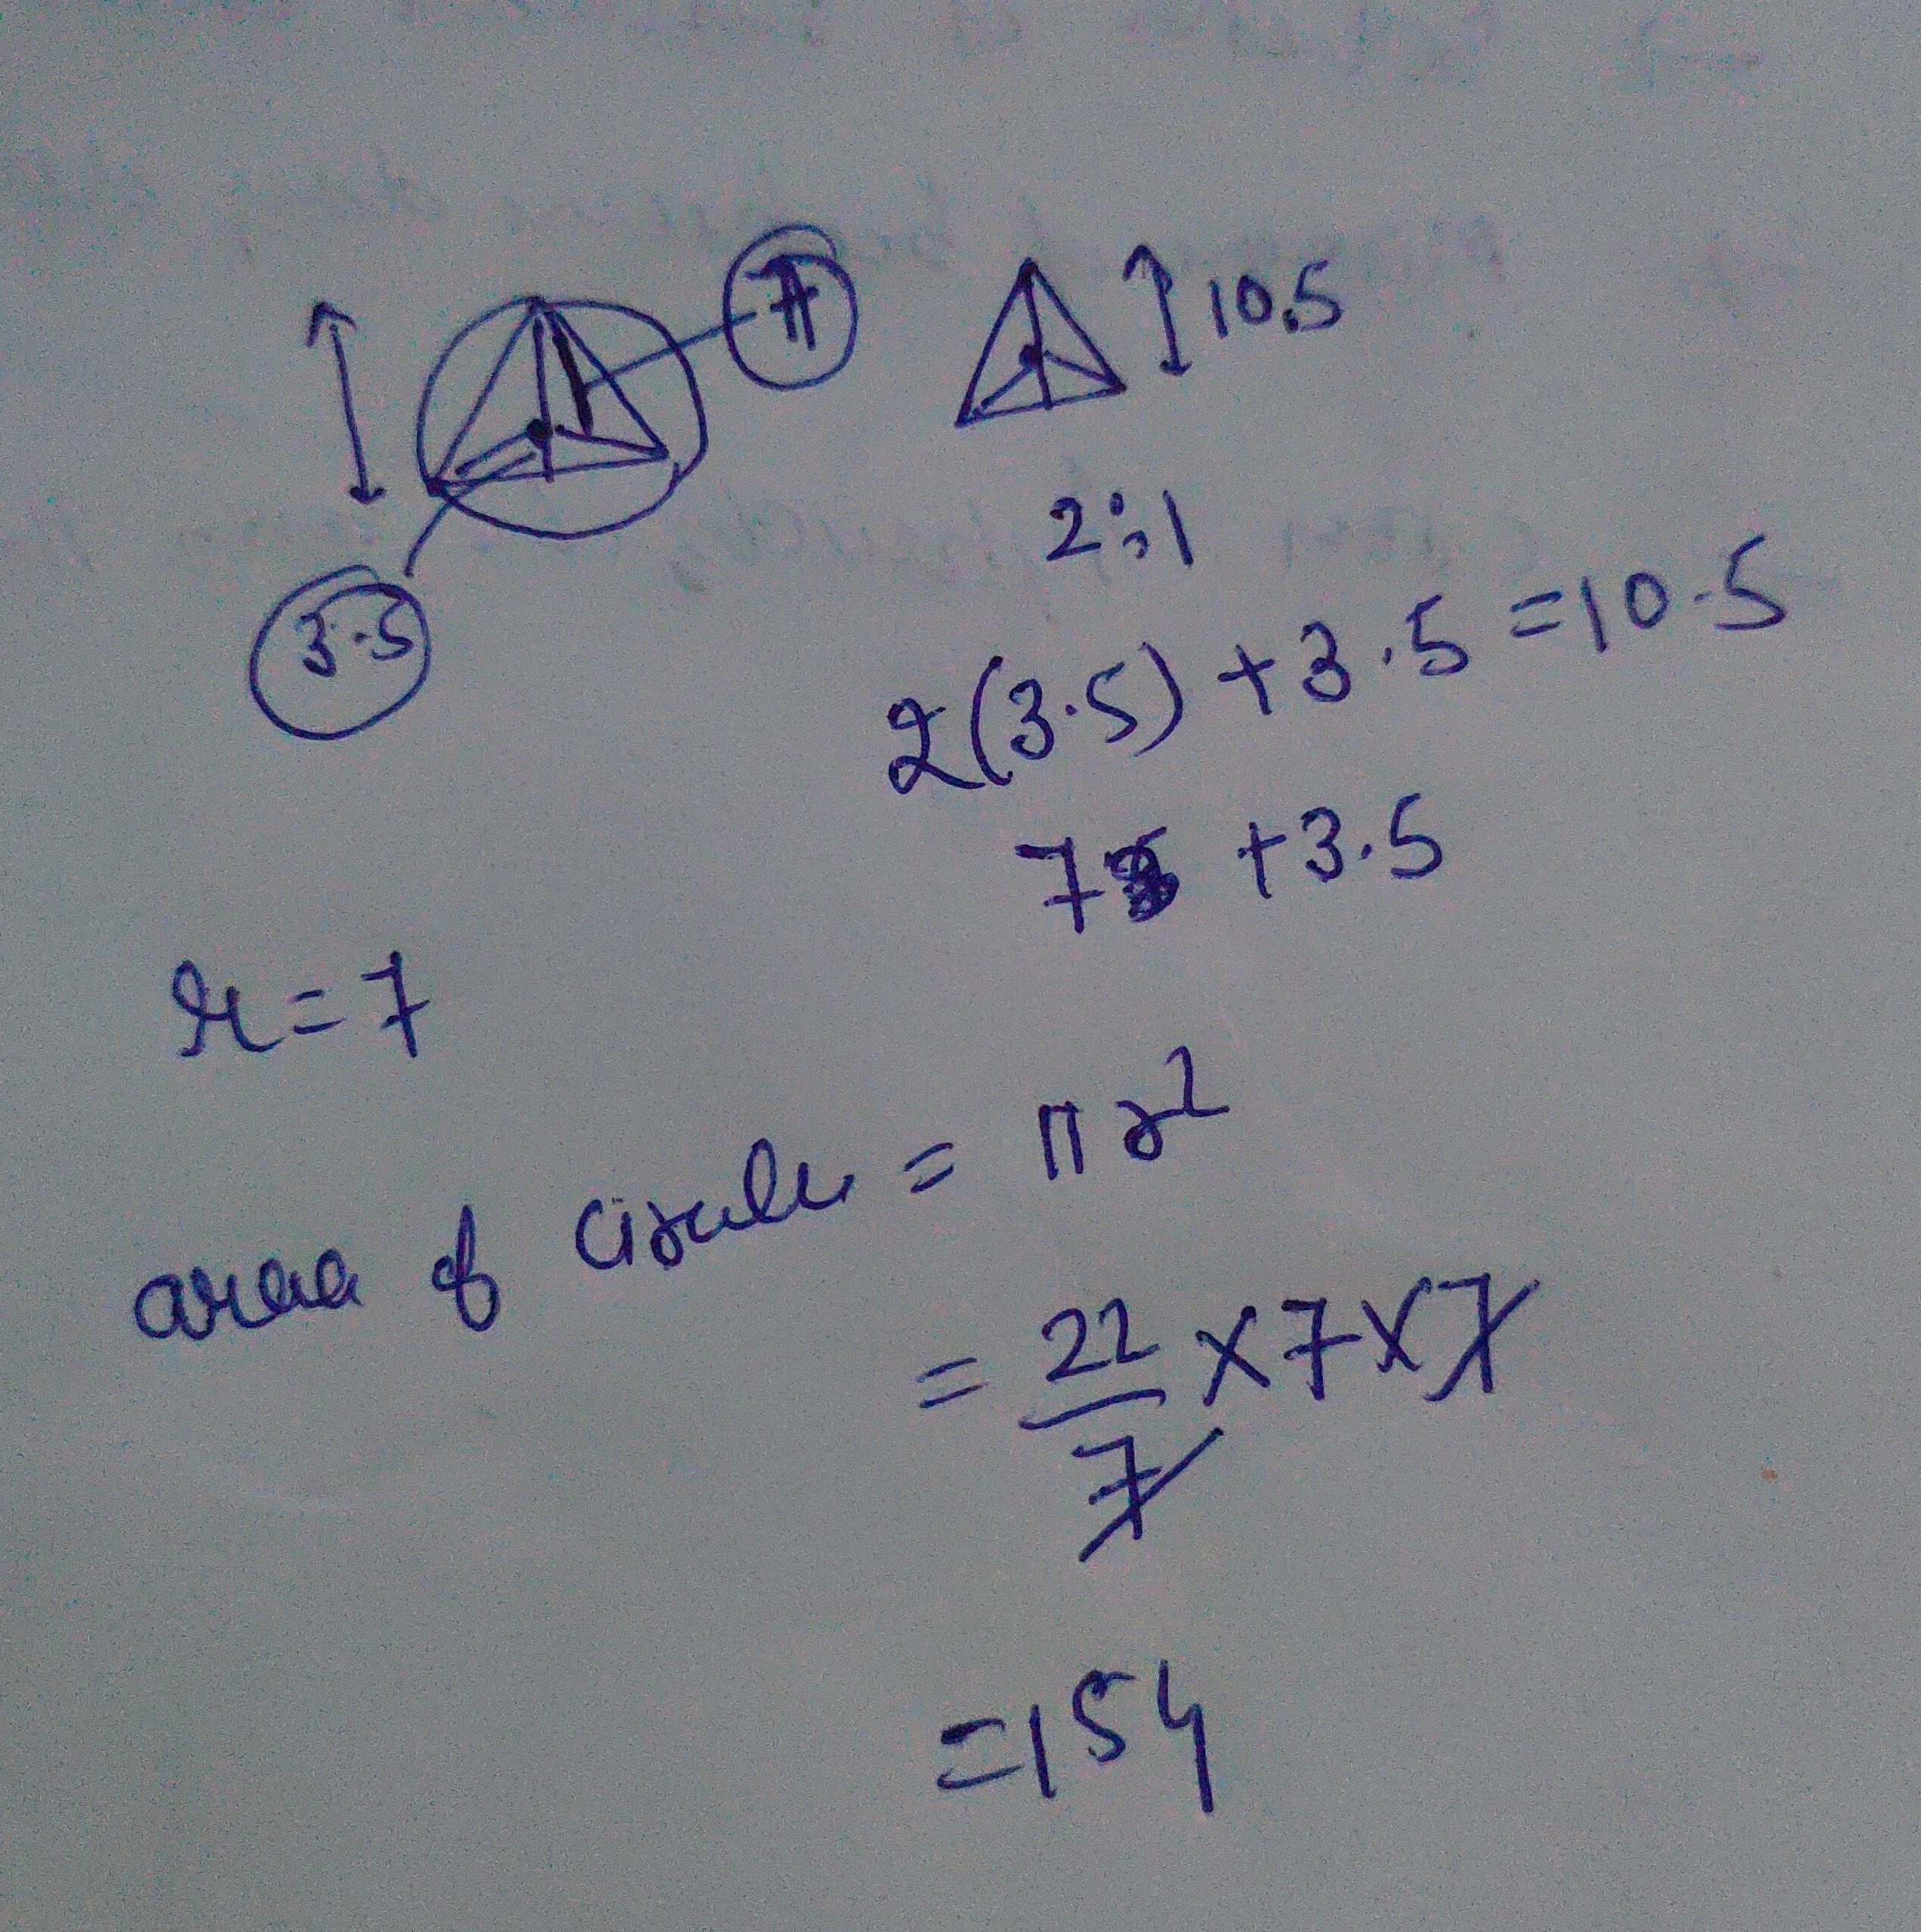 7
10.5
3.5
2:1
2(3.5) + 3.5 = 10.5
7 + 3.5
r = 7
area of circle = πr²
= 22/7 × 7 × 7
= 154